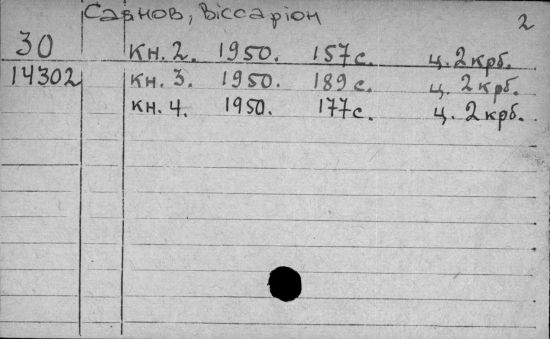 Саянов, Віссаріон 2
30 кн. 2. 1950. 157 с. ц. 2 крб.
14302 кн. 3. 1950. 189 с. ц. 2 крб.
кн. 4. 1950. 177 с. ц. 2 крб.